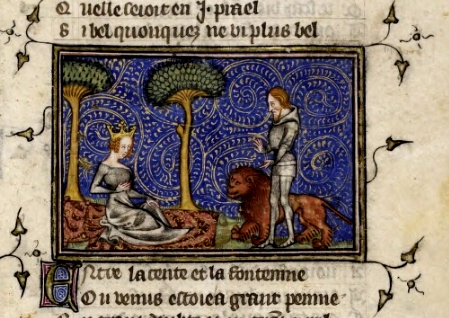 Quelle seroit en J. prael
Si bel quonques ne vi plus bel
Entre la tente et la fontenine
Ou venus estoi ea grant peinne